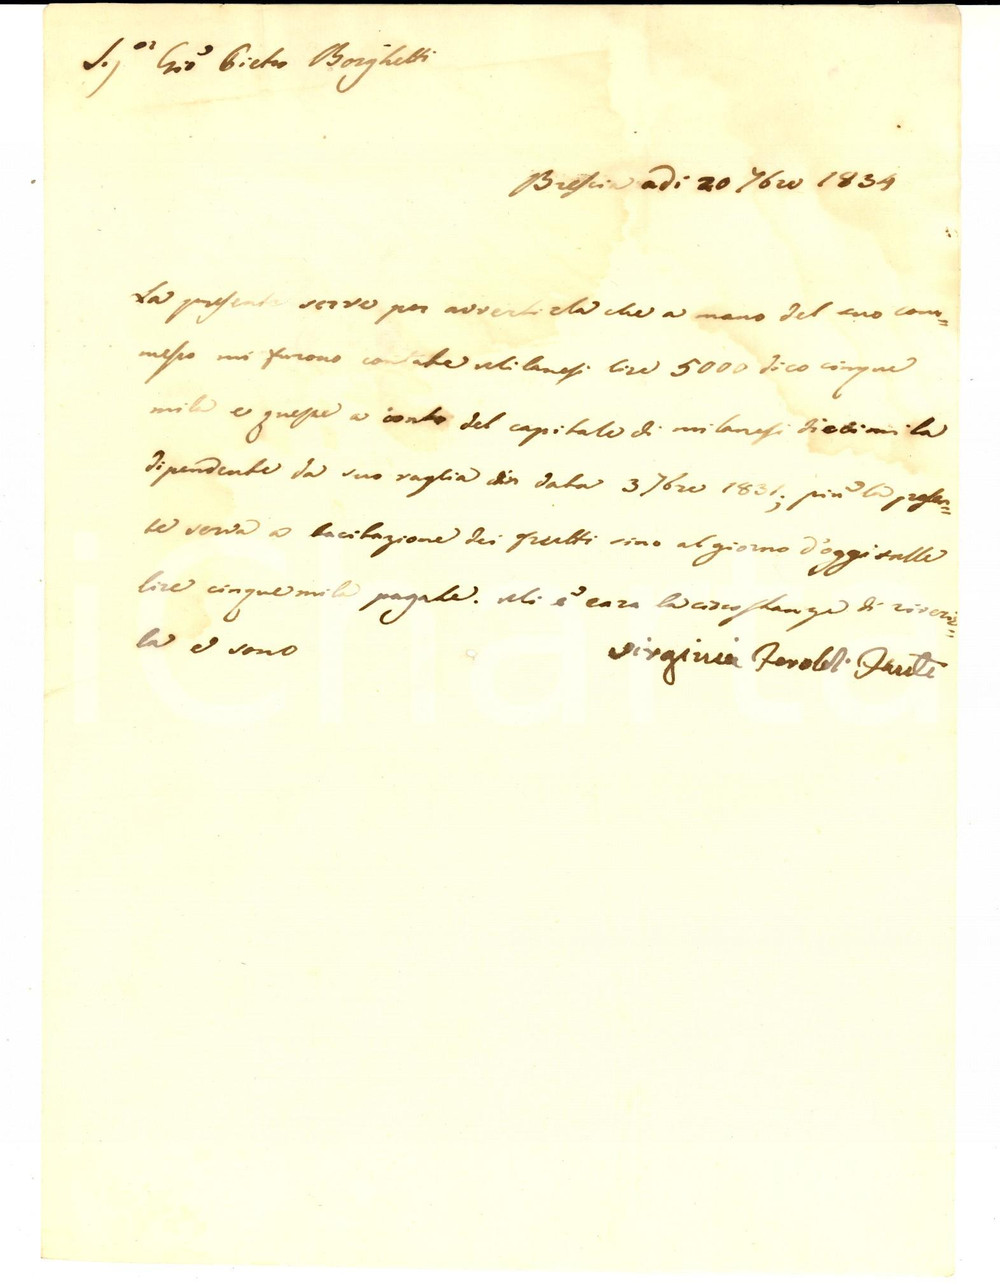 S.r Gio. Pietro Borghetti
Brescia adi 20 7bre 1834
La presente serve per avvertirla che a mano del suo com=
messo mi furono contate Milanesi lire 5000 dico cinque
mila e queste a conto del capitale di milanesi diecimila
dipendente da suo vaglia in data 3 7bre 1831; più la presen=
te serva a tacitazione dei frutti sino al giorno d'oggi sulle
lire cinquemila pagate. Mi è cara la circostanza di riverir=
la e sono
Virginia Feroldi
iCharta